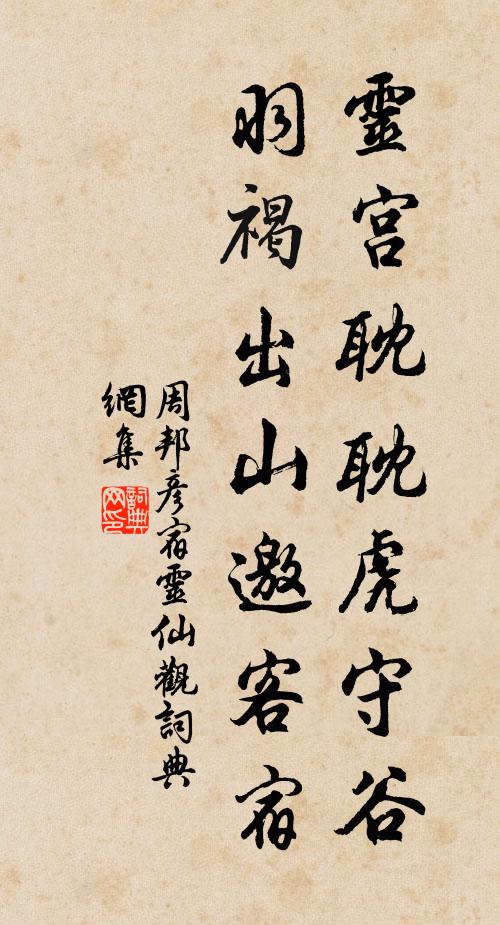 靈宮耽耽虎守谷
羽褐出山邀客宿
周邦彥宿靈仙觀詞典
網集
詞典
网印